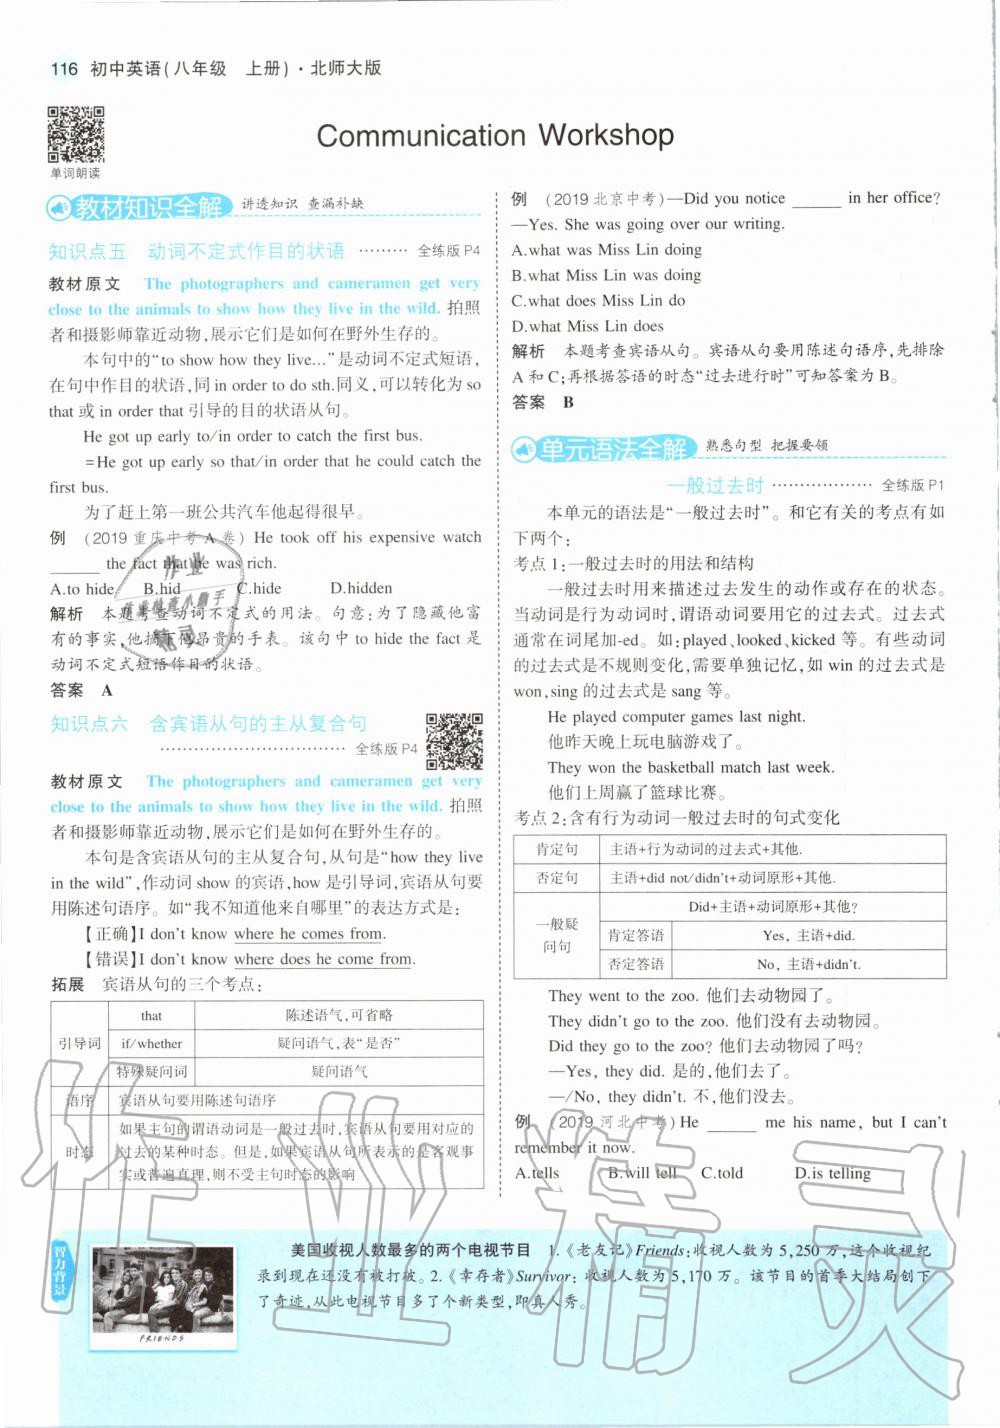 116 初中英语(八年级　上册)·北师大版
Communication Workshop
单词朗读
教材知识全解 讲透知识 查漏补缺
知识点五　动词不定式作目的状语 ……… 全练版P4
教材原文　The photographers and cameramen get very
close to the animals to show how they live in the wild. 拍照
者和摄影师靠近动物,展示它们是如何在野外生存的。
本句中的“to show how they live…”是动词不定式短语,
在句中作目的状语,同 in order to do sth.同义,可以转化为 so
that 或 in order that 引导的目的状语从句。
He got up early to/in order to catch the first bus.
=He got up early so that/in order that he could catch the
first bus.
为了赶上第一班公共汽车他起得很早。
例　(2019重庆中考A卷) He took off his expensive watch
______ the fact that he was rich.
A.to hide　B.hid　C.hide　D.hidden
解析　本题考查动词不定式的用法。句意:为了隐藏他富
有的事实,他摘下他昂贵的手表。该句中 to hide the fact 是
动词不定式短语作目的状语。
答案　A
知识点六　含宾语从句的主从复合句
…………………………… 全练版P4
教材原文　The photographers and cameramen get very
close to the animals to show how they live in the wild. 拍照
者和摄影师靠近动物,展示它们是如何在野外生存的。
本句是含宾语从句的主从复合句,从句是“how they live
in the wild”,作动词 show 的宾语,how 是引导词,宾语从句要
用陈述句语序。如“我不知道他来自哪里”的表达方式是:
【正确】I don't know where he comes from.
【错误】I don't know where does he come from.
拓展　宾语从句的三个考点:
引导词 that 陈述语气,可省略
if/whether 疑问语气,表“是否”
特殊疑问词 疑问语气
语序 宾语从句要用陈述句语序
时态 如果主句的谓语动词是一般过去时,宾语从句要用对应的
过去的某种时态。但是,如果宾语从句所表示的是客观事
实或普遍真理,则不受主句时态的影响
例　(2019北京中考)—Did you notice ______ in her office?
—Yes. She was going over our writing.
A.what was Miss Lin doing
B.what Miss Lin was doing
C.what does Miss Lin do
D.what Miss Lin does
解析　本题考查宾语从句。宾语从句要用陈述句语序,先排除
A 和 C;再根据答语的时态“过去进行时”可知答案为 B。
答案　B
单元语法全解 熟悉句型 把握要领
一般过去时 ……………… 全练版P1
本单元的语法是“一般过去时”。和它有关的考点有如
下两个:
考点1:一般过去时的用法和结构
一般过去时用来描述过去发生的动作或存在的状态。
当动词是行为动词时,谓语动词要用它的过去式。过去式
通常在词尾加-ed。如:played、looked、kicked 等。有些动词
的过去式是不规则变化,需要单独记忆,如 win 的过去式是
won,sing 的过去式是 sang 等。
He played computer games last night.
他昨天晚上玩电脑游戏了。
They won the basketball match last week.
他们上周赢了篮球比赛。
考点2:含有行为动词一般过去时的句式变化
肯定句 主语+行为动词的过去式+其他.
否定句 主语+did not/didn't+动词原形+其他.
一般疑问句 Did+主语+动词原形+其他?
肯定答语 Yes, 主语+did.
否定答语 No, 主语+didn't.
They went to the zoo. 他们去动物园了。
They didn't go to the zoo. 他们没有去动物园。
Did they go to the zoo? 他们去动物园了吗?
—Yes, they did. 是的,他们去了。
—/No, they didn't. 不,他们没去。
例　(2019河北中考)He ______ me his name, but I can't
remember it now.
A.tells　B.will tell　C.told　D.is telling
智力背景
FRIENDS
美国收视人数最多的两个电视节目　1.《老友记》Friends:收视人数为 5,250 万,这个收视纪
录到现在还没有被打破。2.《幸存者》Survivor: 收视人数为 5,170 万。该节目的首季大结局创下
了奇迹,从此电视节目多了个新类型,即真人秀。
作业精灵